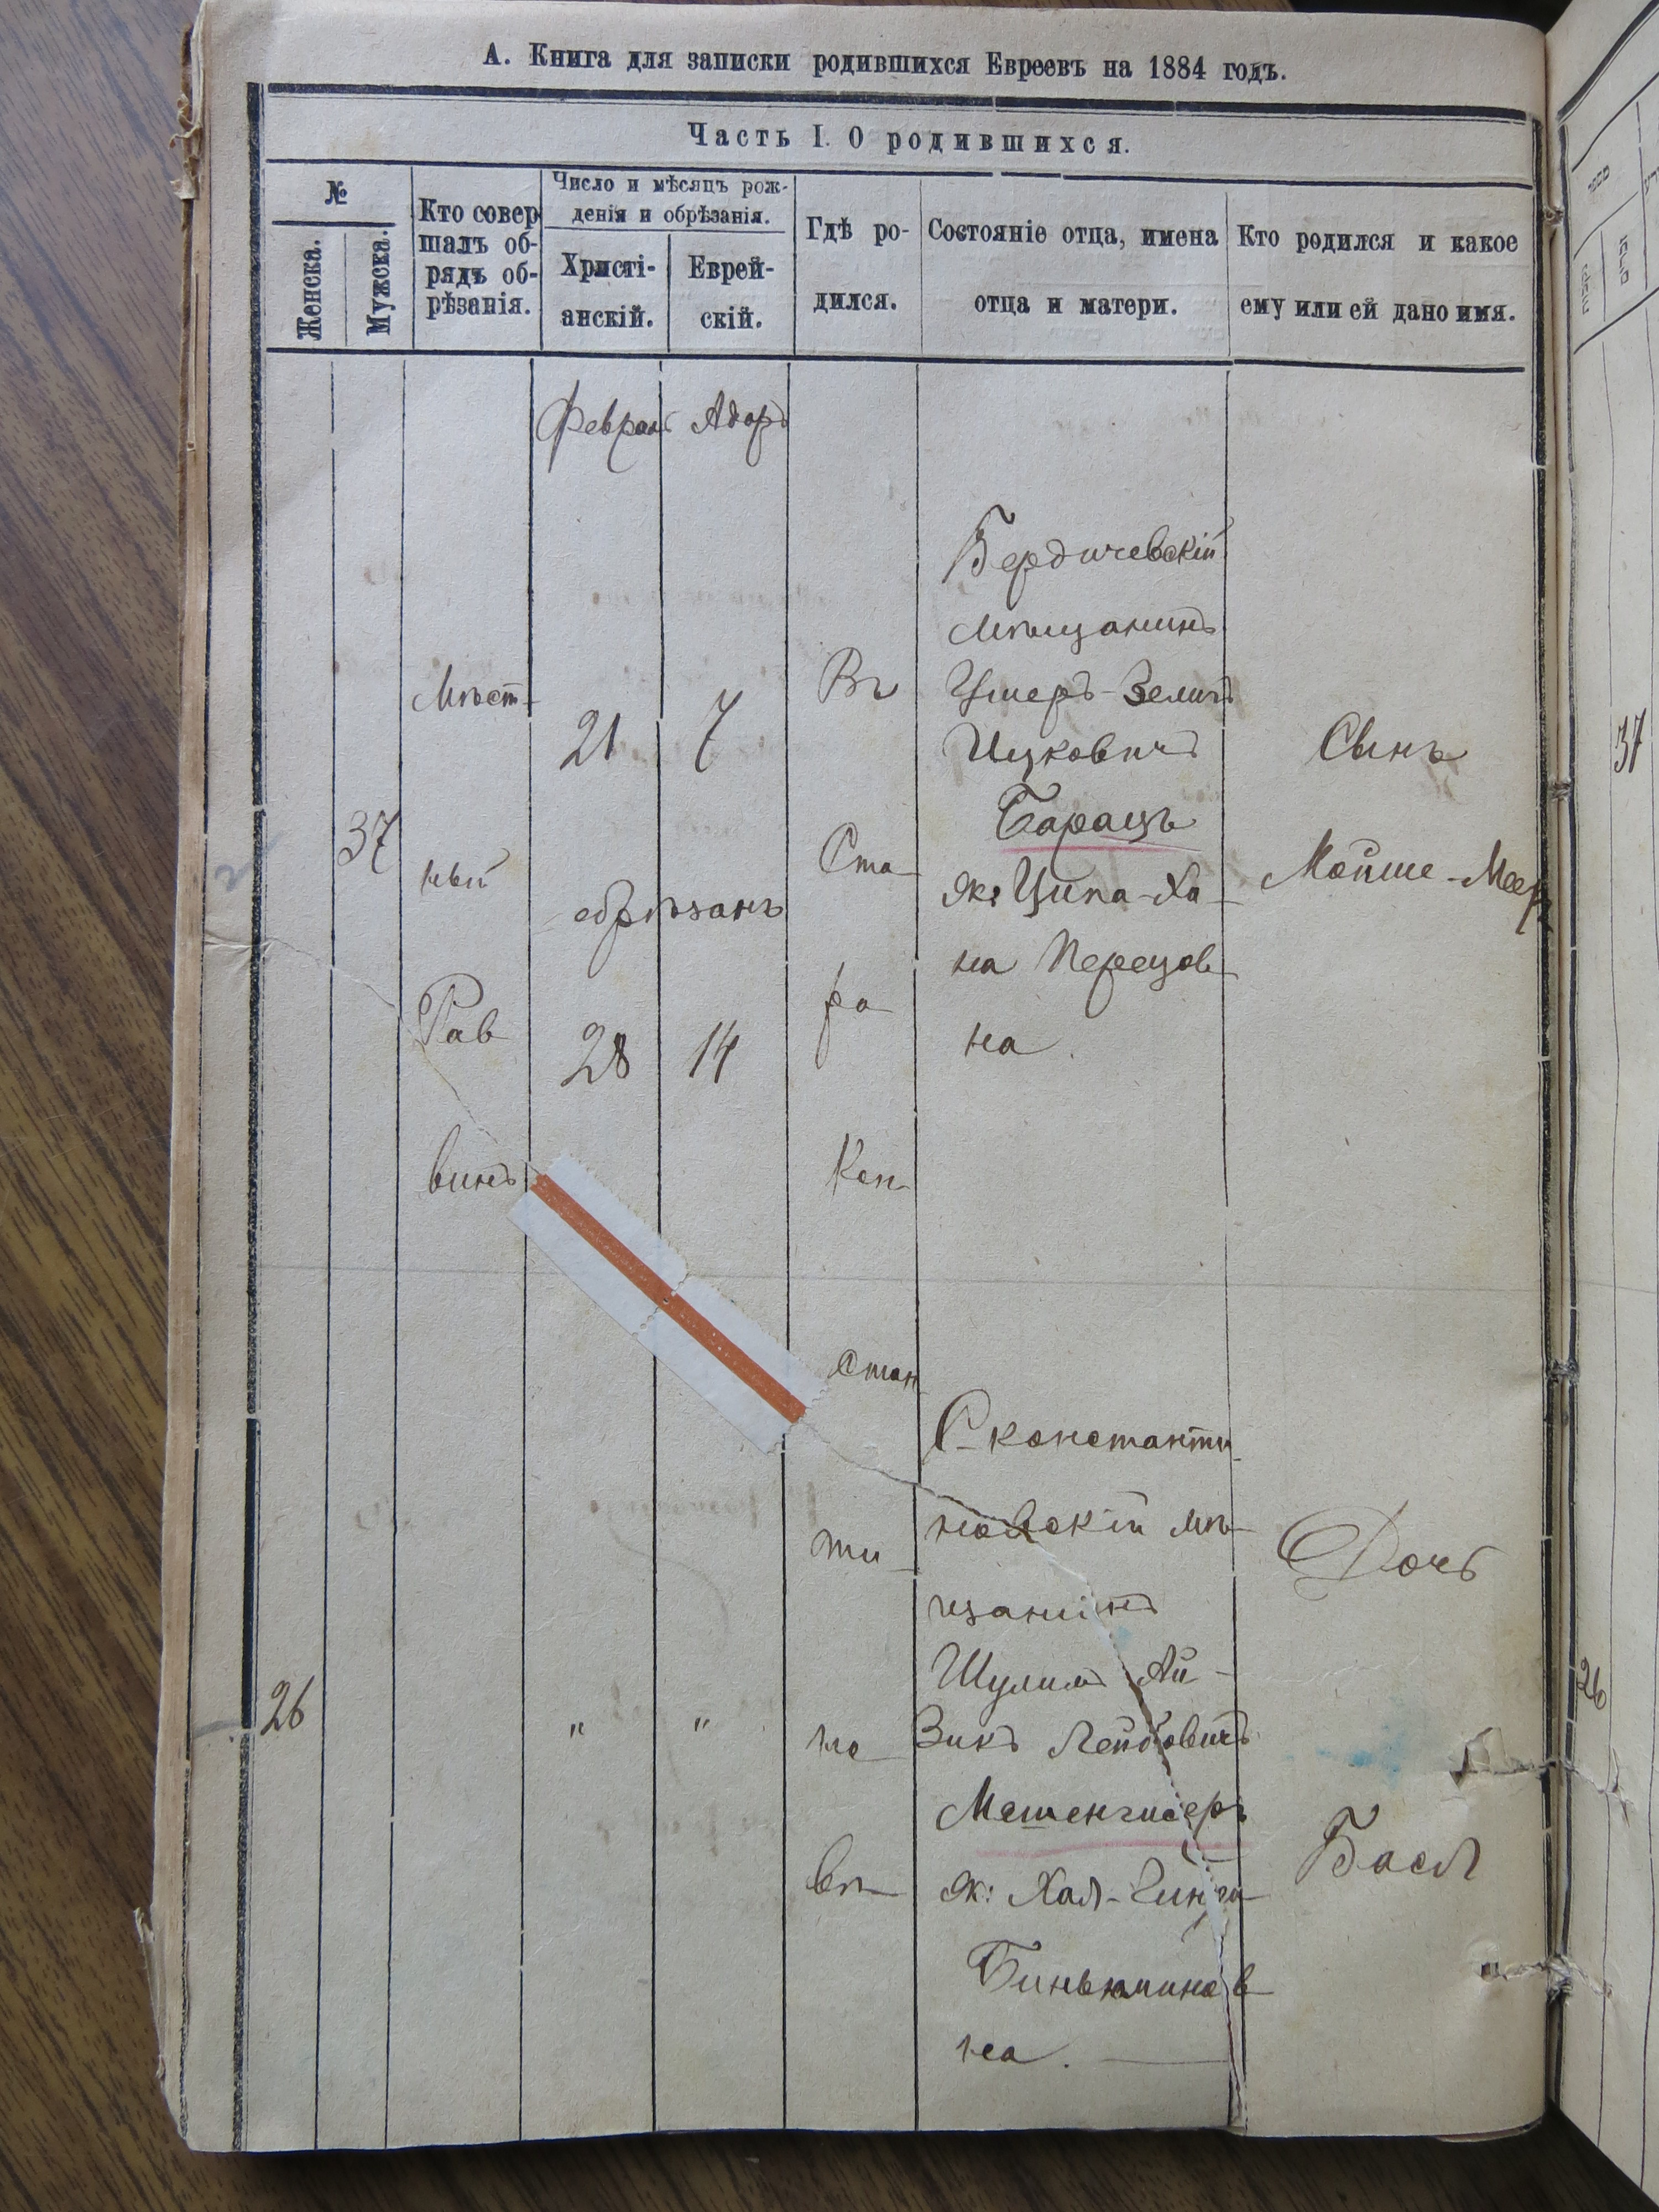 А. Книга для записки родившихся Евреевъ на 1884 годъ.
Часть I. О родившихся.
№
Женска.
Мужска.
Кто совер
шалъ об-
рядъ об-
рѣзанія.
Число и мѣсяцъ рож-
денія и обрѣзанія.
Христі-
анскій.
Еврей-
скій.
Гдѣ ро-
дился.
Состояніе отца, имена
отца и матери.
Кто родился и какое
ему или ей дано имя.
Февраль Адаръ
37
Мѣст-
ный
Рав
винъ
21 7
обрѣзанъ
28 14
Въ
Ста-
ро-
Кон-
стан
ти-
но-
вѣ
Бердичевскій
мѣщанинъ
Ушеръ-Зелигъ
Ицковичъ
Барацъ
ж: Ципа-Ха-
на Перецов-
на.
Сынъ
Мойше-Меер
26
" "
С-константи-
новскій мѣ-
щанинъ
Шулимъ Ай-
Зикъ Лейбовичъ
Мешенгисеръ
ж: Хая-
Биньюминов-
на.
Дочь
Бася
37
26